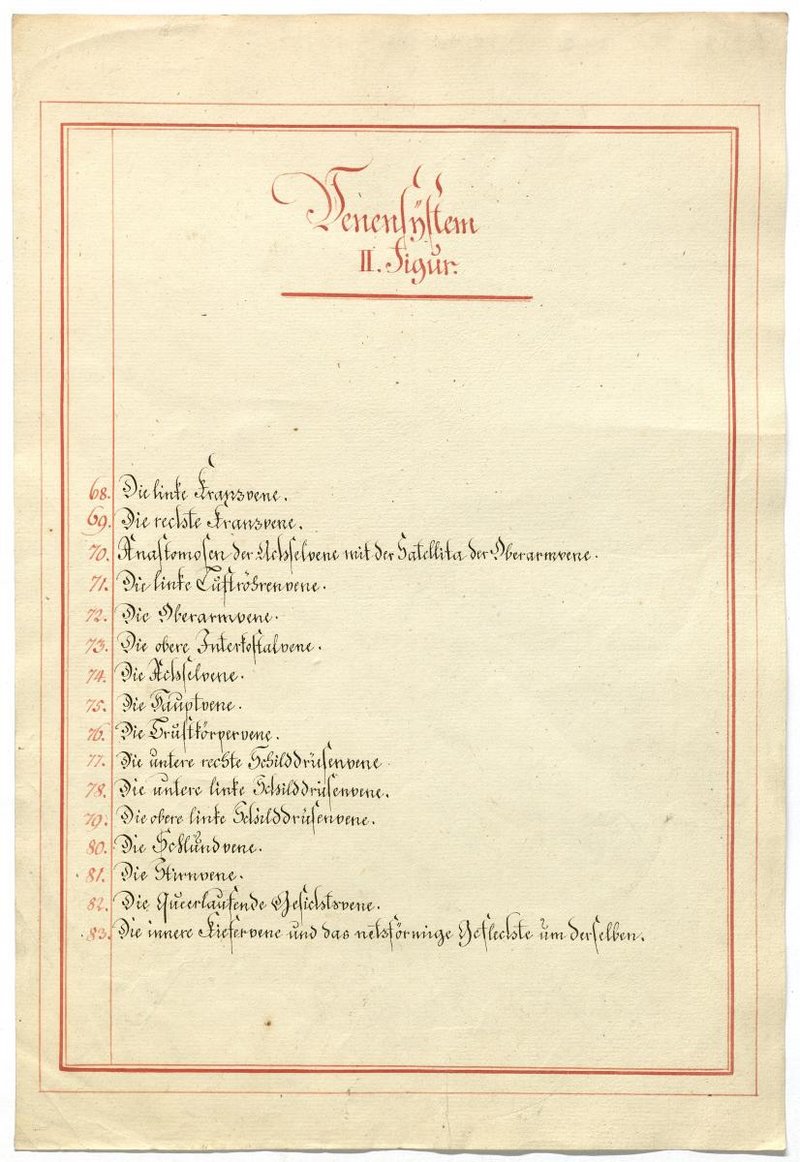 Venensÿstem
II. Figur.
68. Die linke Kranzvene.
69. Die rechte Kranzvene.
70. Anastomosen der Achselvene mit der Satellita der Oberarmvene.
71. Die linke Luftröhrenvene.
72. Die Oberarmvene.
73. Die obere Interkostalvene.
74. Die Achselvene.
75. Die Hauptvene.
76. Die Brustkörpervene.
77. Die untere rechte Schilddrüsenvene
78. Die untere linke Schilddrüsenvene.
79. Die obere linke Schilddrüsenvene.
80. Die Schlundvene.
81. Die Stirnvene.
82. Die Queerlaufende Gesichtsvene.
83. Die innere Kiefervene und das netzförmige Geflechte um derselben.